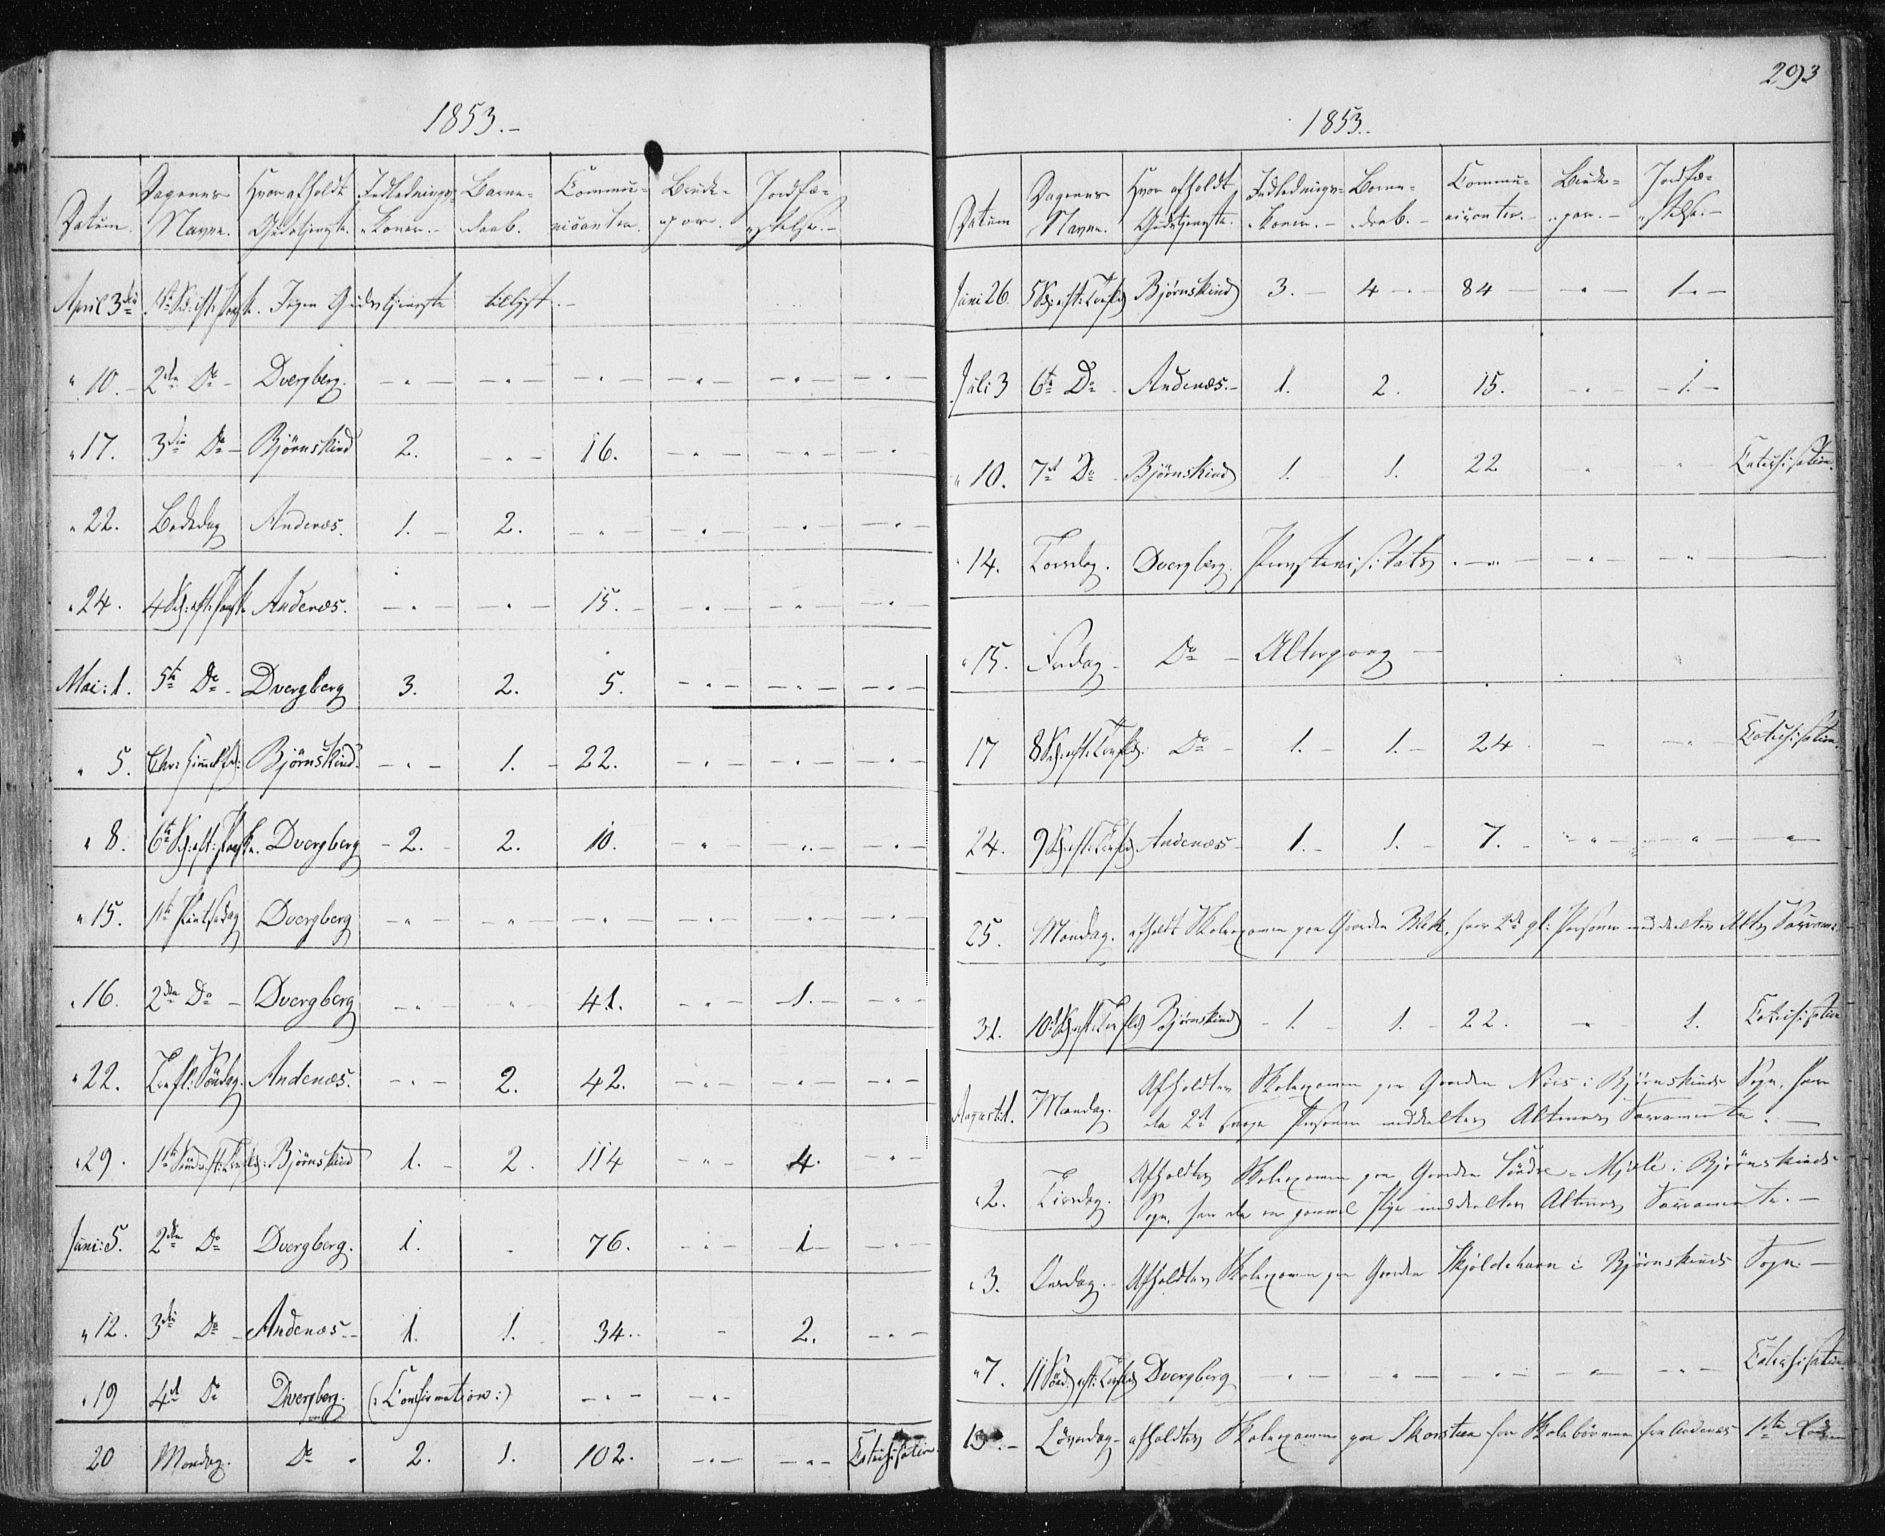 1853.-
Datum. Dagenes Navne. Hvor afholdt Gudstjeneste. Indlednings-koner.- Barne-daab. Communicanter. Brude-par. Jordfæ-stelse.-
April 3die 1ste S: eft: Paaske. Ingen Gudstjeneste tillyst.-
" 10.- 2den Do - Dvergberg. - " - - " - - " - - " - - " - - " -
" 17. 3die Do - Bjørnskind 2. - " - 16. - " - - " - - " -
" 22. Bededag Andenæs. 1. - 2. - " - - " - - " - - " -
" 24. 4 S: eft: Paaske Andenæs. - " - - " - 15. - - " - - " - - " -
Mai: 1. 5te Do - Dvergberg 3. 2. 5. - " - - " - - " -
" 5. Chr: Himmelf: Bjørnskind. - " - 1. - 22. - " - - " - - " -
" 8. 6te S: eft: Paaske. Dvergberg - 2. - 2. 10. " " - " -
" 15. 1ste Pintsedag Dvergberg - " - - " - - " - - " - - " - - " -
" 16. 2den Do - Dvergberg - " - - " - 41. - " - - 1. - - " -
" 22. Trefl: Søndag. Andenæs. - " - 2. 42. - " - - " - - " -
" 29. 1ste Sønd: eft: Trefold: Bjørnskind 1. - 2. 114 - " - 4. - " -
Juni: 5. 2den Do Dvergberg. 1. . 76. - " - 1 - - " -
" 12. 3die Do - Andenæs.- 1. 1. 34.- - 2. - " -
" 19 4de Do Dvergberg. (: Confirmation :) - " - - " -
20 Mondag. Do . 2. 1. 102. - " - - " - Catechisation.
293
1853.
Datum Dagenes Navne. Hvor afholdt Gudstjeneste. Indlednings-koner.- Barne-daab.- Communicanter.- Brude-par.- Jordfæ-stelse.-
Juni 26 5 S: eft: Trefold Bjørnskind 3. - 4 - 84 - " - 1. -
Juli 3 6te Do - Andenæs.- 1. 2. 15. - " - - 1. -
" 10. 7de Do - Bjørnskind 1. 1. 22 " " Catechisation.
" 14. Torsdag. Dvergberg. Provstevisitats - " - - " - "
" 15. Fredag - Do - Altergang -
17 8 S: eft: Trefold: Do - 1. - 1. - 24 . - - " - Catechisation.
24. 9 S: eft: Trefold Andenæs - 1. - 1. - 7. - " " "
25. Mandag. afholdt Skoleexamen paa Gaarden Bleik, hvor 2de gl: Personer meddeeltes Altr: Sacram:
31. 10de S: eft: Trefold Bjørnskind - 1. - 1. - 22. - " 1. Catechisation
August: 1. Mandag. Afholdtes Skoleexamen paa Gaarden i Bjørnskinds Sogn, hvor
da 2de Personer meddeeltes Alterens Sacramente. -
" 2. Tirsdag. Afholdtes Skoleexamen paa Gaarden Søndre-Mjele i Bjørnskinds-
Sogn, hvor da en gammel Pige meddeeltes Alterens Sacramente. -
" 3. Onsdag.- Afholdtes Skoleexamen paa Gaarden Skjoldehavn i Bjørnskinds Sogn -
" 7. 11 Sønd: eft: Trefold Dvergberg - " - - " - - " - - " - - " - Catechisation
13.- Løverdag - afholdtes Skoleexamen paa Skarsteen for Skolebørnene fra Andenæs 1ste